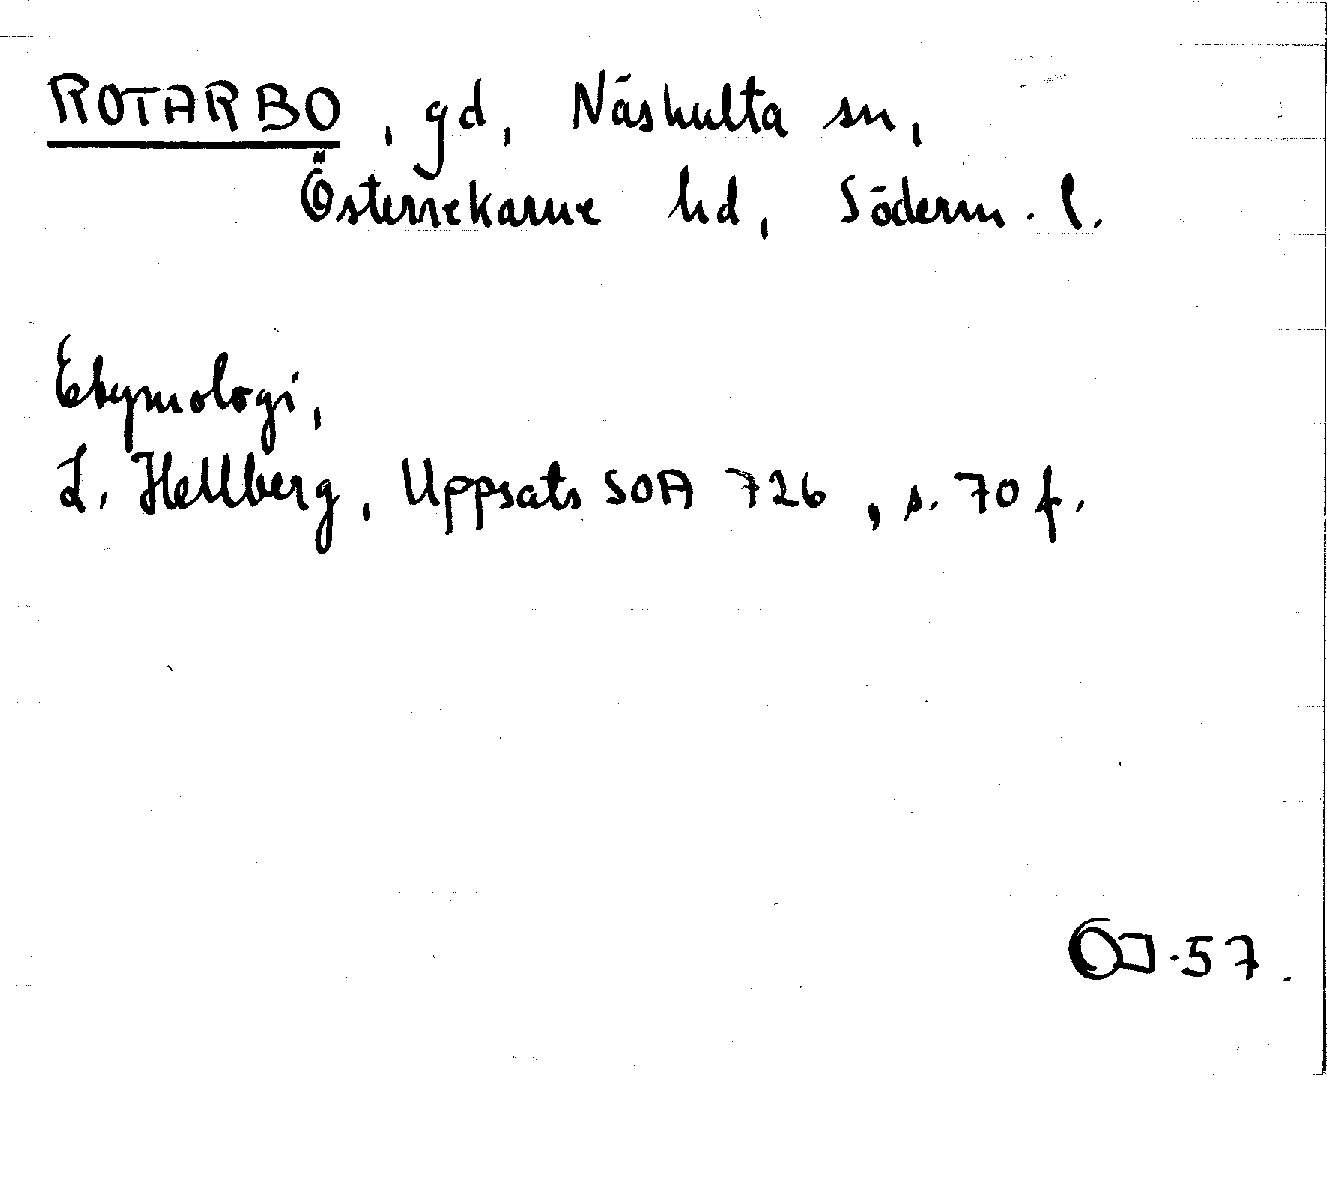 ROTARBO, gd, Näshulta sn,
Österrekarne hd, Söderm. l.
Etymologi,
L. Hellberg, Uppsats SOA 726, s. 70 f.
57.